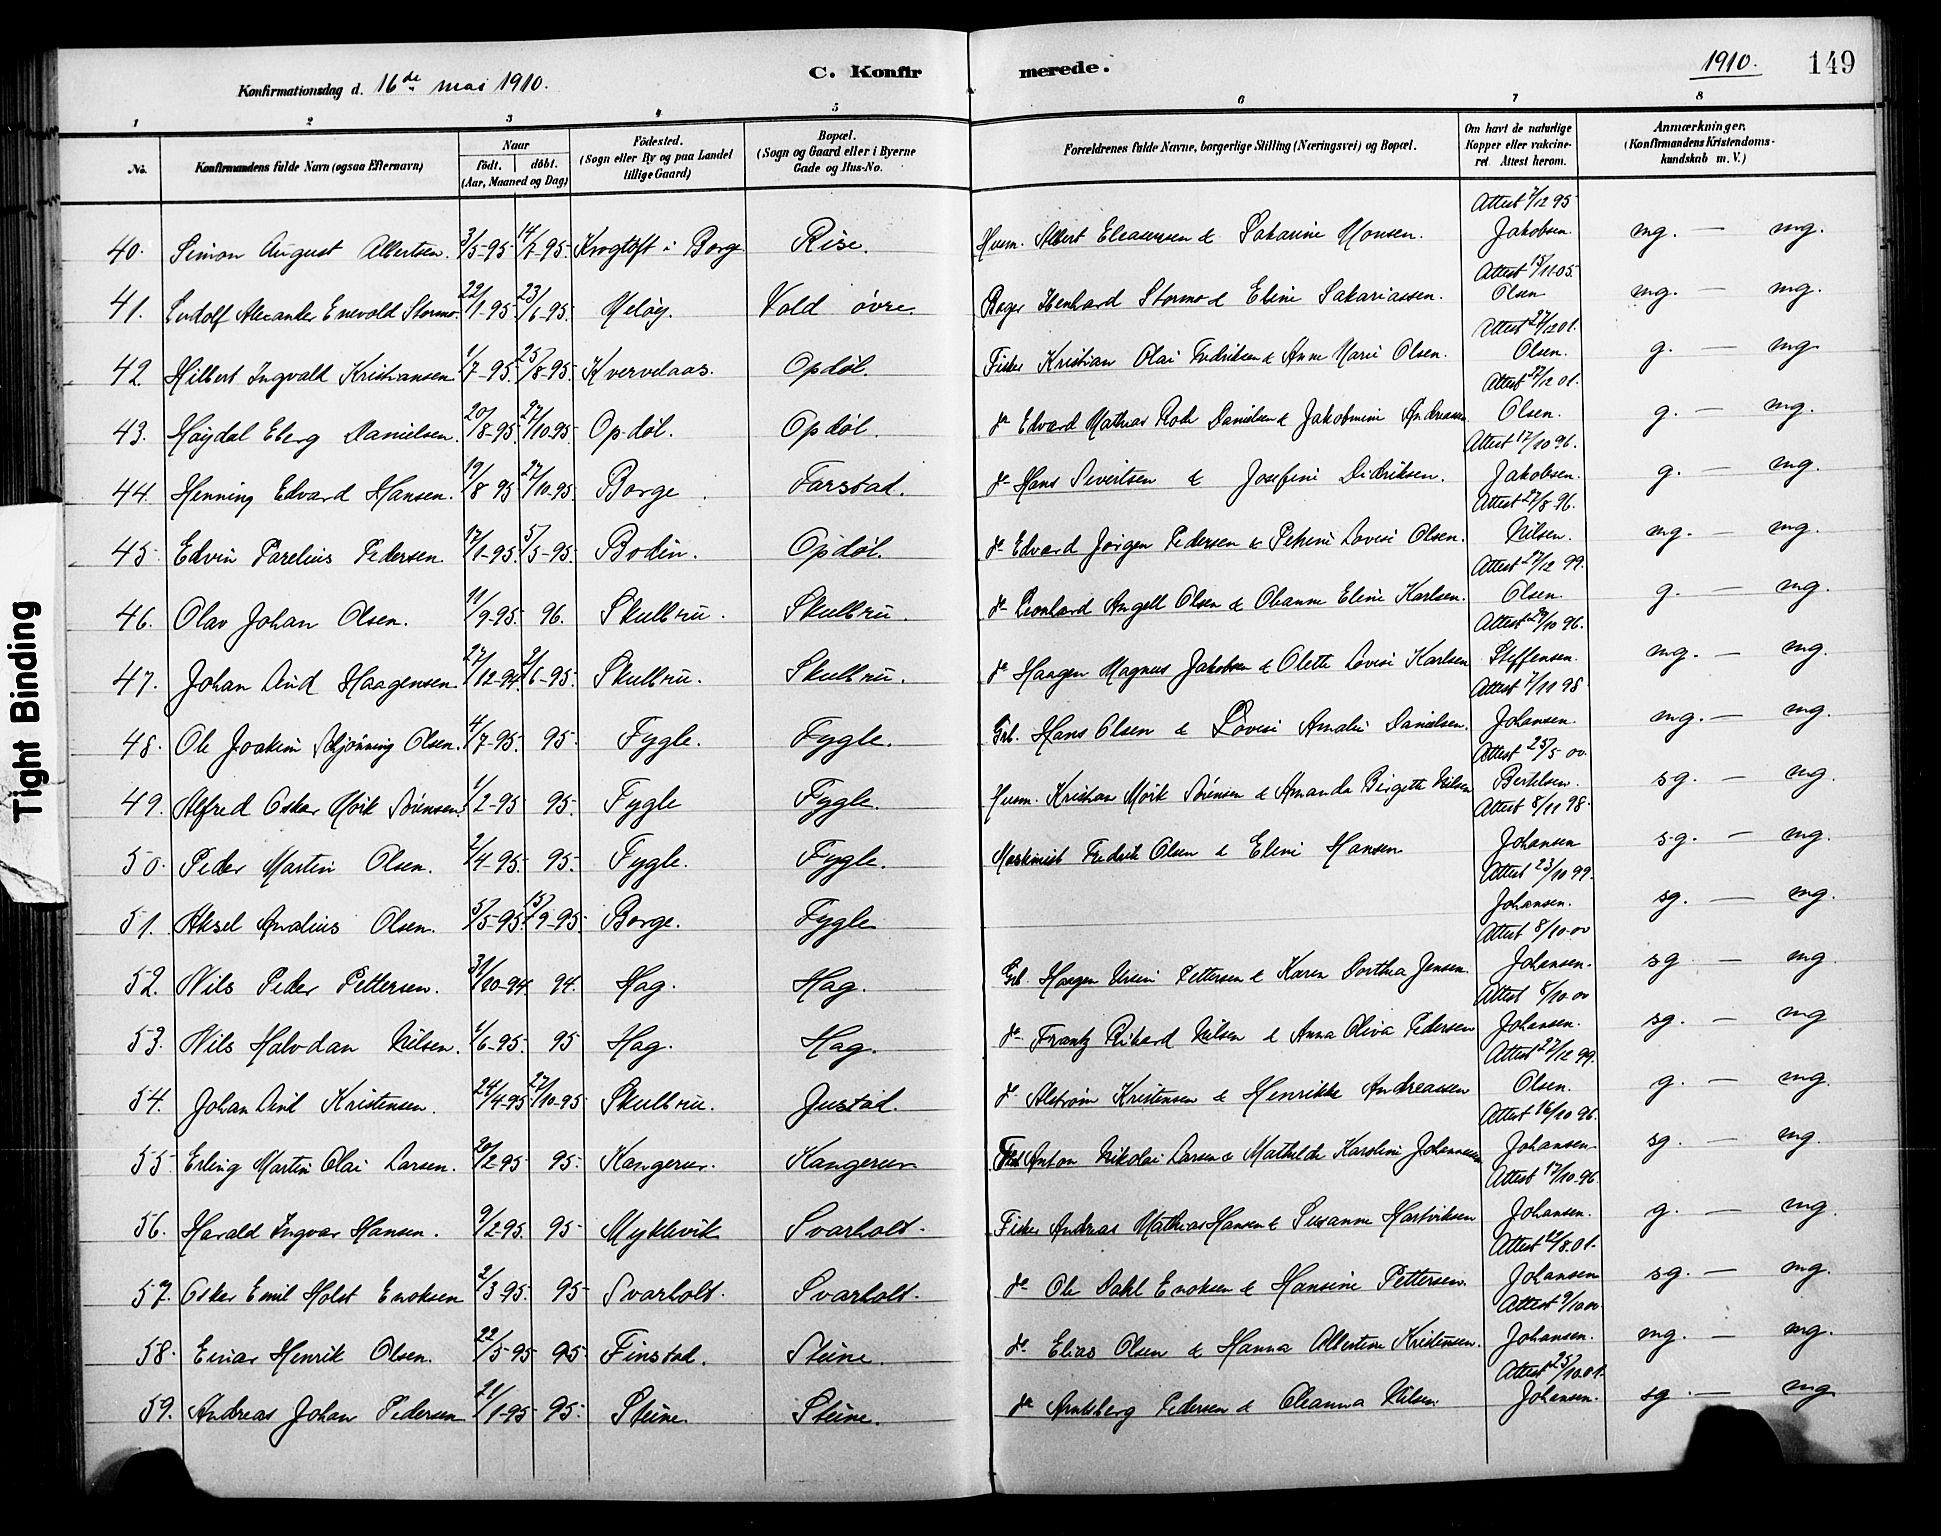 1910. 149
C. Konfirmerede.
Konfirmationsdag d. 16de mai 1910.
1 2 3 4 5 6 7 8
No. Konfirmandens fulde Navn (ogsaa Efternavn) Naar født. døbt. (Aar, Maaned og Dag) Fødested. (Sogn eller By og paa Landet tillige Gaard) Bopæl. (Sogn og Gaard eller i Byerne Gade og Hus-No. Forældrenes fulde Navne, borgerlige Stilling (Næringsvei) og Bopæl. Om havt de naturlige Kopper eller vakcineret. Attest herom. Anmærkninger. (Konfirmandens Kristendomskundskab m. V.)
40. Simon August Albertsen. 3/5-95. 14/7-95. Krogtoft i Borge Rise. Husm. Albert Eleasersen & Sakarine Monsen. Attest 7/12 95 Jakobsen. mg. — mg.
41. Ludolf Alexander Enevold Stormo. 22/1-95. 23/6-95. Meløy. Vold øvre. Bager Henhard Stormo & Eline Sakariassen. Attest 15/11 05. Olsen mg. — mg.
42. Hilbert Ingvald Kristiansen 1/7-95. 25/8-95. Kvervelaas. Opdøl. Fisker Kristian Olai Fredriksen & Anne Marie Olsen. Attest 27/12 01. Olsen. g. — mg
43. Høydal Eberg Danielsen. 20/8-95. 27/10-95 Opdøl. Opdøl. do Edvard Mathias Rode Danielsen & Jakobmine Andreassen Attest 27/12 01. Olsen. g. — mg.
44. Henning Edvard Hansen. 19/8 95 27/10-95 Borge. Farstad. do Hans Sivertsen & Josefine Didriksen. Attest 17/10 96. Jakobsen. g. — mg.
45. Edvin Parelius Pedersen. 17/1-95. 5/5-95. Bodin. Opdøl. do Edvard Jørgen Pedersen & Petrine Lovise Olsen. Attest 27/8 96. Nilsen. mg. — mg.
46. Olav Johan Olsen. 11/9-95. 96. Skulbru. Skulbru. do Leonhard Angell Olsen & Oleanna Eline Karlsen. Attest 27/12 99. Olsen. g. — mg.
47. Johan Arnd Haagensen. 27/12-94. 2/6-95. Skulbru. Skulbru. do Haagen Magnus Jakobsen & Olette Lovise Karlsen Attest 29/10 96. Steffensen. mg. — mg.
48. Ole Joakim Schjønning Olsen. 4/7-95. 95. Fygle. Fygle. Grb. Hans Olsen & Lovise Amalie Danielsen. Attest 7/11 98 Johansen. mg. — mg.
49. Alfred Oskar Mørk Sørensen. 1/2-95 95. Fygle Fygle. Husm. Kristian Mørk Sørensen & Amanda Birgette Nilsen Attest 25/5 00 Bertelsen. sg. — mg.
50. Peder Martin Olsen. 2/4-95. 95. Fygle. Fygle. Maskinist Fredrik Olsen & Eline Hansen Attest 8/11 98. Johansen sg. — mg.
51. Aksel Analius Olsen. 5/5-95. 15/9-95. Borge. Fygle Attest 23/10 99. Johansen. sg. — mg.
52. Nils Peder Pettersen. 31/10-94. 94. Hag. Hag. Grb. Haagen Ursin Pettersen & Karen Dorthea Jensen. Attest 8/10-00 Johansen. sg — mg
53. Nils Halvdan Nilsen. 1/6-95. 95 Hag. Hag. do Frantz Rikard Nilsen & Anna Oliva Pedersen Attest 8/10-00 Johansen. sg. — mg
54. Johan Arnt Kristensen. 24/4-95 27/10-95 Skulbru. Justad. do Alstrøm Kristensen & Henrikke Andreassen Attest 27/12 99. Olsen. g. — mg.
55. Erling Martin Olai Larsen. 20/2-95 95. Kangerur. Kangerur Anton Nikolai Larsen & Mathilde Karoline Johannessen Attest 16/10 96. Johansen. sg. — mg.
56. Harald Ingvar Hansen. 9/2-95. 95 Myklevik Svarholt. Fisker Andreas Mathias Hansen & Susanne Hartviksen Attest 17/10-96. Johansen. g. — mg.
57. Oskar Emil Holst Enoksen 2/3-95. 95 Svarholt. Svarholt. do Ole Dahl Enoksen & Hansine Pettersen. Attest 12/8.01. Johansen sg. — mg.
58. Einar Henrik Olsen. 22/5-95 95 Finstad. Steine. do Elias Olsen & Hanna Albertine Kristensen. Attest 9/10 00 Johansen. mg. — mg.
59. Andreas Johan Pedersen 21/1-95 95. Steine Steine. do Arntsberg Pedersen & Oleanna Nilsen. Attest 25/10 01. Johansen. sg. — mg
Tight Binding